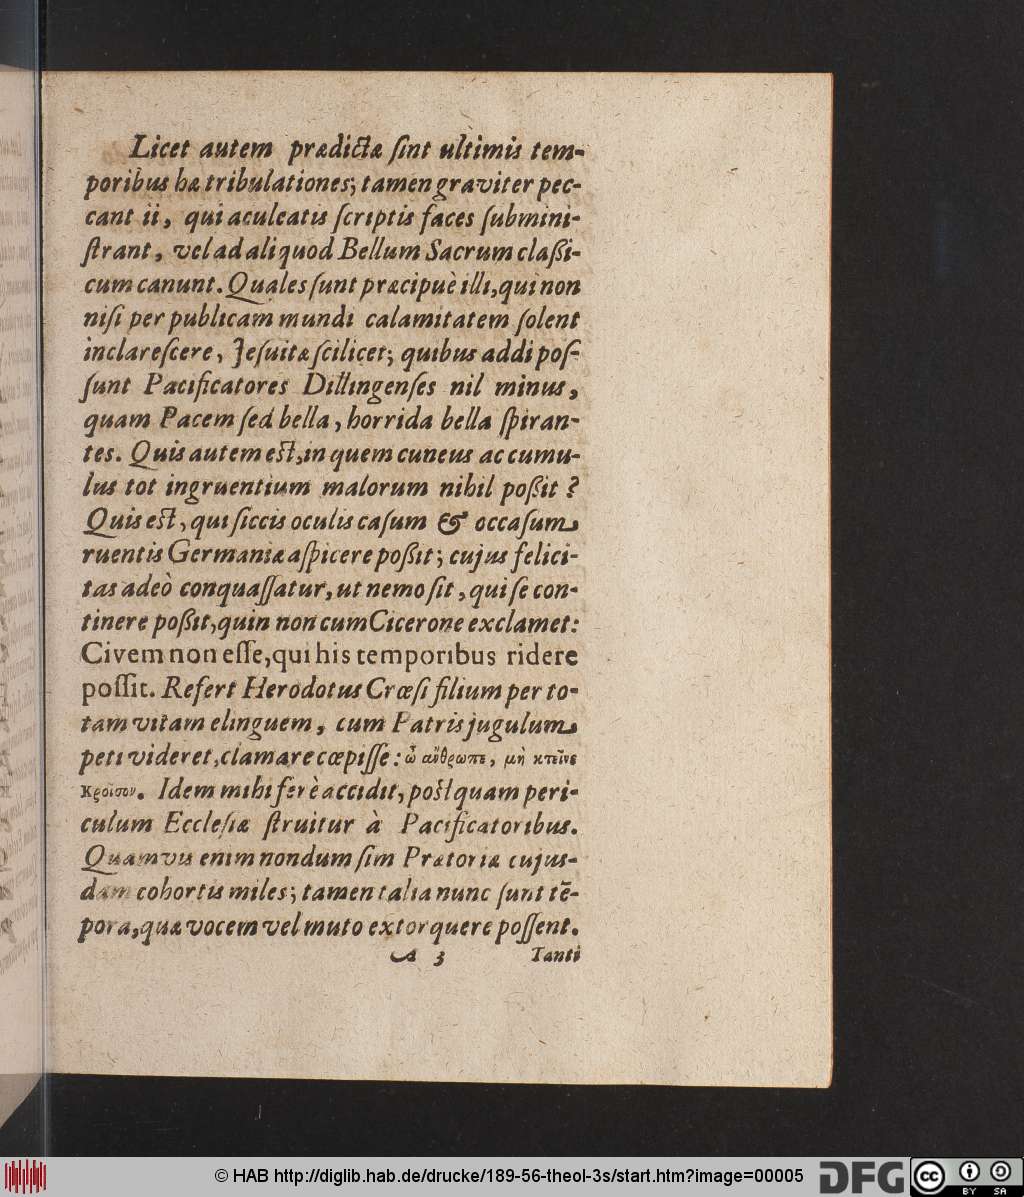 Licet autem prædictæ ſint ultimis tem-
poribus hæ tribulationes; tamen graviter pec-
cant ii, qui aculeatis ſcriptis faces ſubmini-
ſtrant, vel ad aliquod Bellum Sacrum claßi-
cum canunt. Quales ſunt præcipuè illi, qui non
niſi per publicam mundi calamitatem ſolent
inclareſcere, Jeſuitæ ſcilicet; quibus addi poſ-
ſunt Pacificatores Dillingenſes nil minus,
quam Pacem ſed bella, horrida bella ſpiran-
tes. Quis autem eſt, in quem cuneus ac cumu-
lus tot ingruentium malorum nihil poßit?
Quis eſt, qui ſiccis oculis caſum & occaſum
ruentis Germaniæ aſpicere poßit; cujus felici-
tas adeò conquaſſatur, ut nemo ſit, qui ſe con-
tinere poßit, quin non cum Cicerone exclamet:
Civem non eſſe, qui his temporibus ridere
poſſit. Refert Herodotus Crœſi filium per to-
tam vitam elinguem, cum Patris jugulum
peti videret, clamare cœpiſſe: ὦ ἄνθρωπε, μὴ κτεῖνε
Κροῖσον. Idem mihi ferè accidit, poſtquam peri-
culum Eccleſiæ ſtruitur à Pacificatoribus.
Quamvis enim nondum ſim Prætoriæ cujus-
dam cohortis miles; tamen talia nunc ſunt tē-
pora, quæ vocem vel muto extorquere poſſent.
A 3 Tanti
© HAB http://diglib.hab.de/drucke/189-56-theol-3s/start.htm?image=00005 DFG cc BY SA